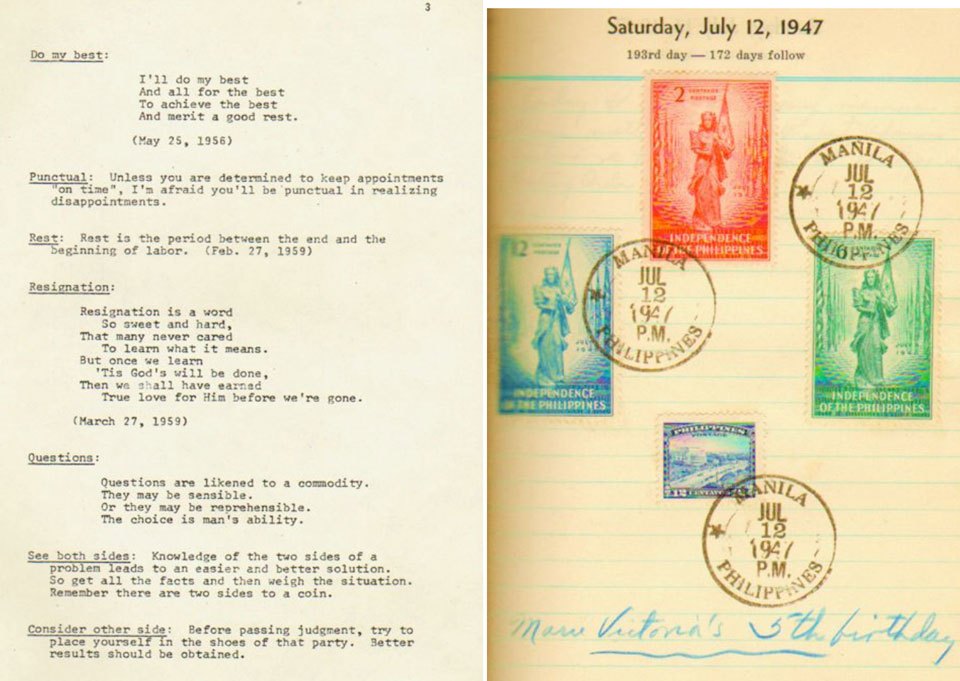 3
Do my best:
I'll do my best
And all for the best
To achieve the best
And merit a good rest.
(May 25, 1956)
Punctual: Unless you are determined to keep appointments
"on time", I'm afraid you'll be punctual in realizing
disappointments.
Rest: Rest is the period between the end and the
beginning of labor. (Feb. 27, 1959)
Resignation:
Resignation is a word
So sweet and hard,
That many never cared
To learn what it means.
But once we learn
'Tis God's will be done,
Then we shall have earned
True love for Him before we're gone.
(March 27, 1959)
Questions:
Questions are likened to a commodity.
They may be sensible.
Or they may be reprehensible.
The choice is man's ability.
See both sides: Knowledge of the two sides of a
problem leads to an easier and better solution.
So get all the facts and then weigh the situation.
Remember there are two sides to a coin.
Consider other side: Before passing judgment, try to
place yourself in the shoes of that party. Better
results should be obtained.
Saturday, July 12, 1947
193rd day — 172 days follow
2 CENTAVOS
POSTAGE
INDEPENDENCE
OF THE PHILIPPINES
MANILA
JUL
12
1947
P.M.
PHILIPPINES
12 CENTAVOS
POSTAGE
JULY
INDEPENDENCE
OF THE PHILIPPINES
MANILA
JUL
12
1947
P.M.
PHILIPPINES
INDEPENDENCE
OF THE PHILIPPINES
PHILIPPINES
POSTAGE
12 CENTAVOS
MANILA
JUL
12
1947
P.M.
PHILIPPINES
Marie Victoria's 5th birthday